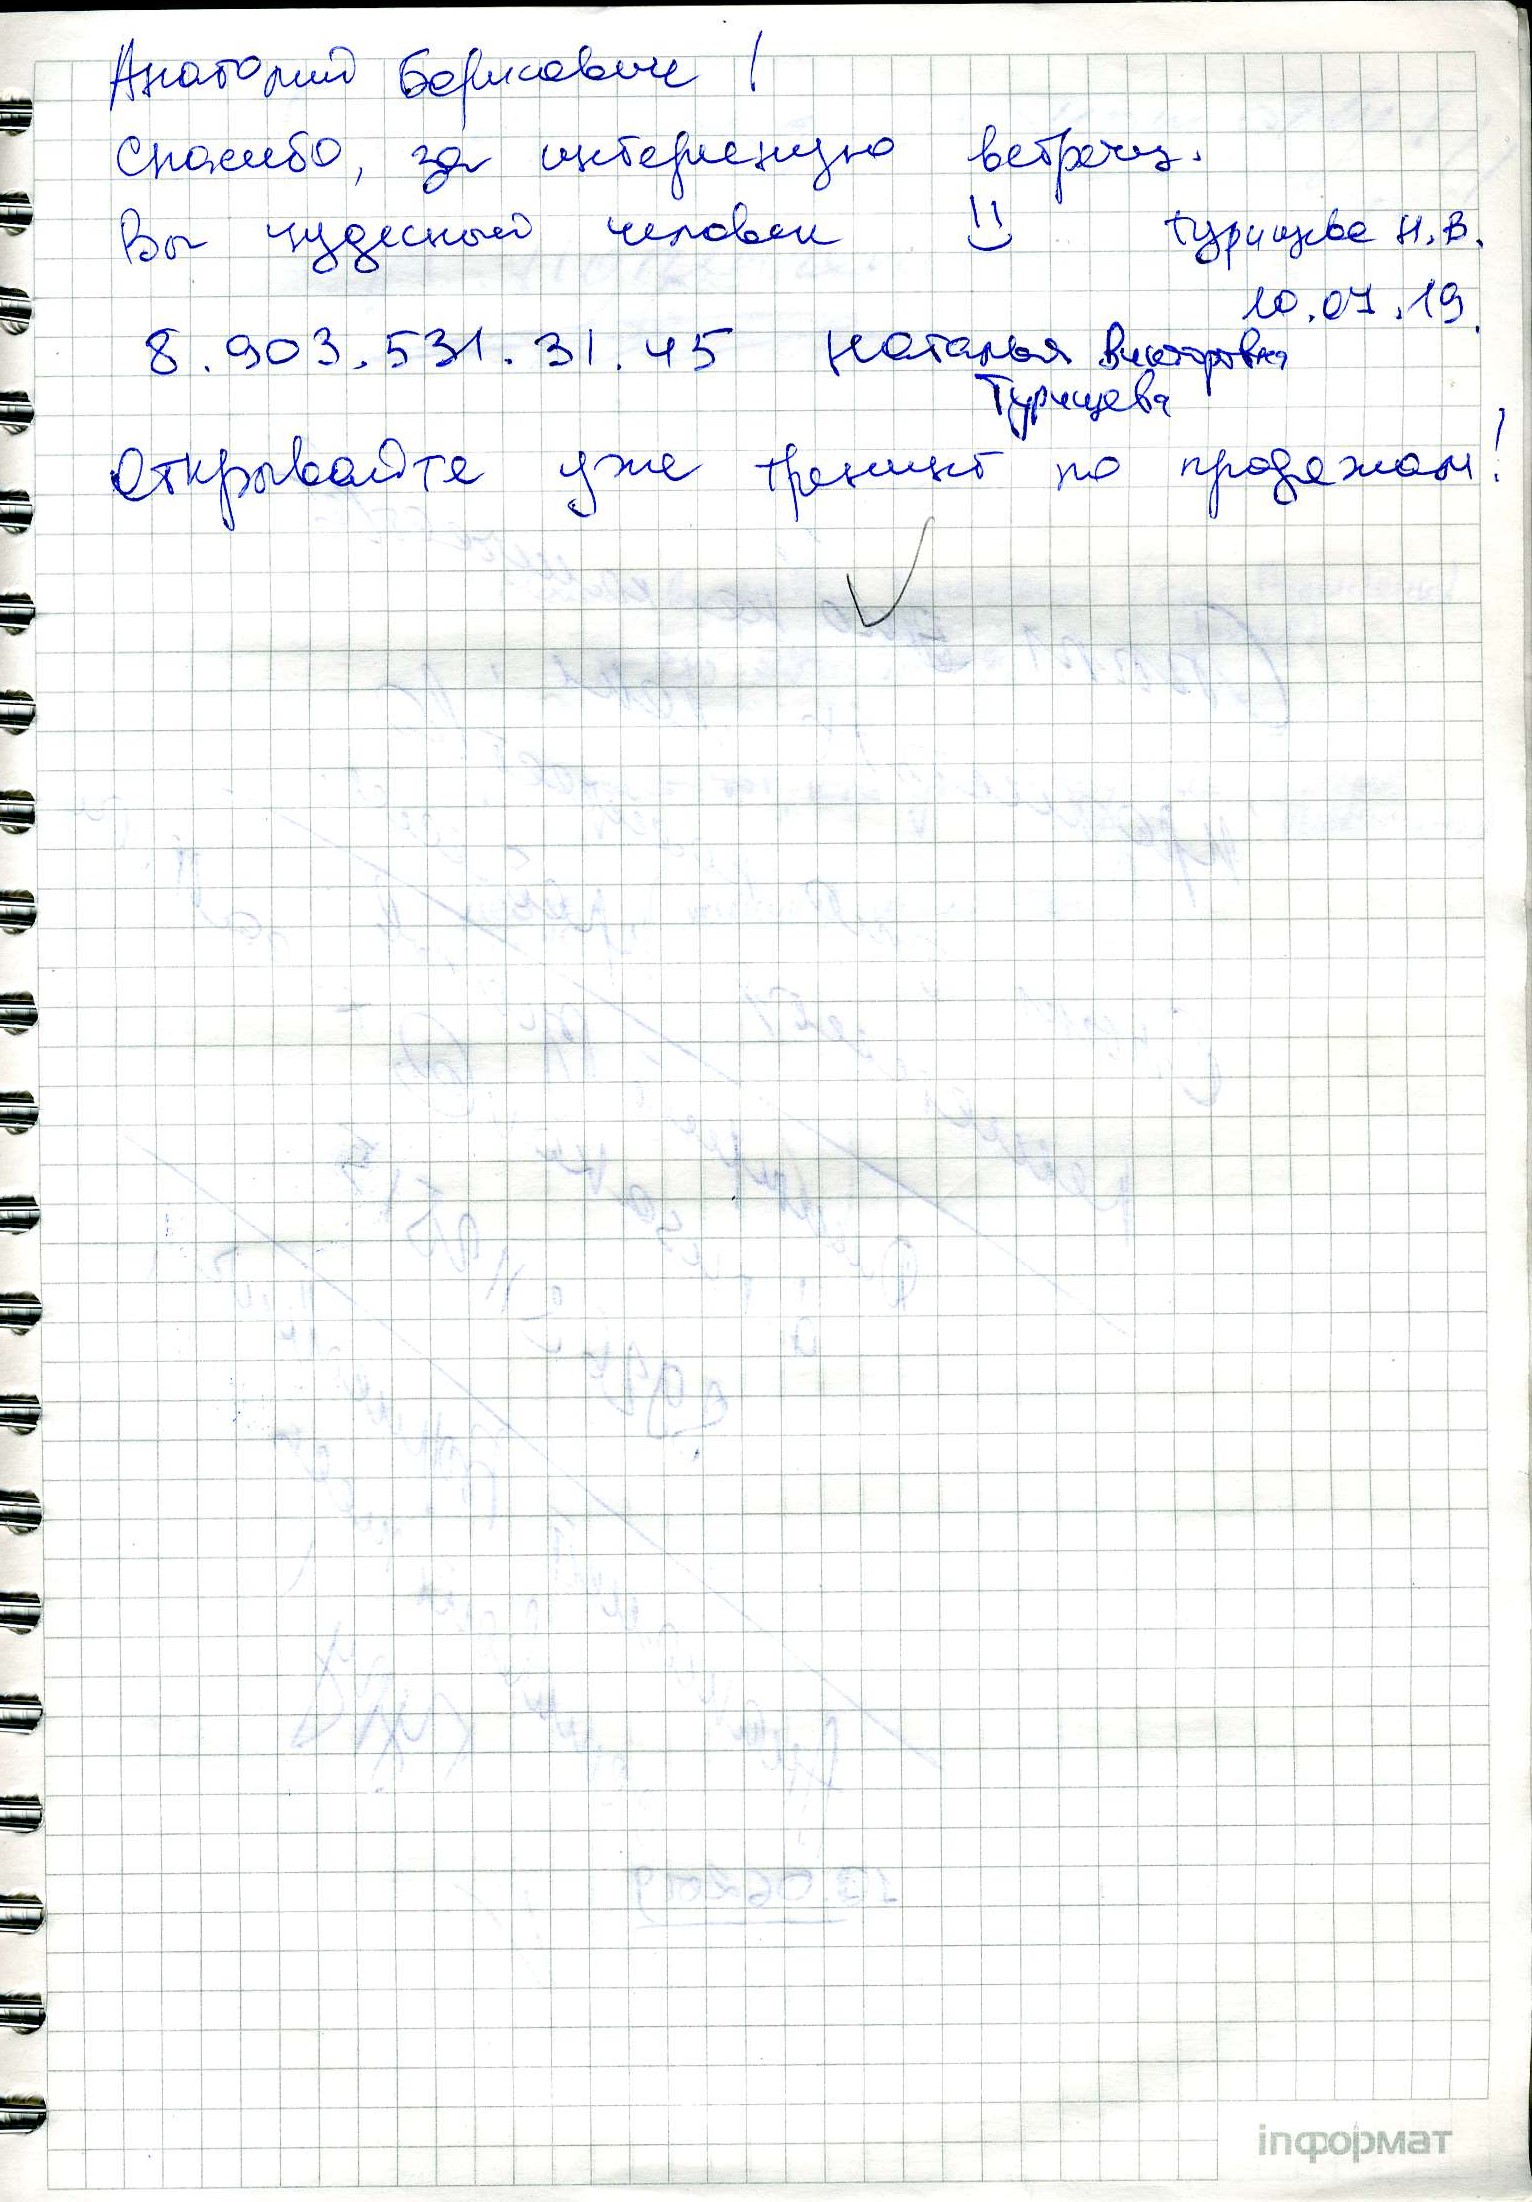 Анатолий Борисович!
Спасибо, за интересную встречу.
Вы чудесный человек
Турищева Н.В.
10.07.19.
8.903.531.31.45 Наталья Викторовна
Турищева
Открывайте уже тренинг по продажам!
inформат